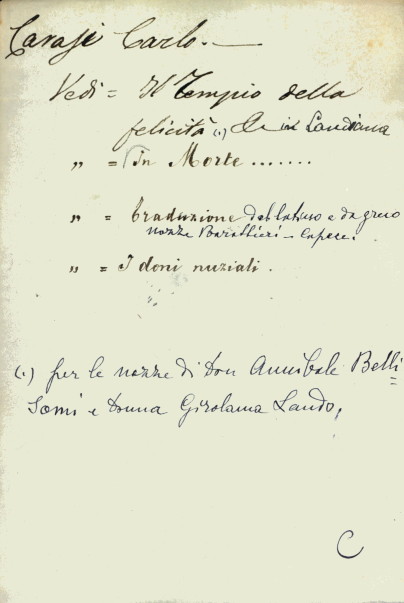 Carasi Carlo. —
Vedi = Il Tempio della
felicità (1) in Landiana
„ = (In Morte .......
„ = Traduzione del latino e da greco
nozze Barattieri - Capece.
„ = I doni nuziali.
(1) per le nozze di Don Annibale Belli
Somi e Donna Girolama Lando,
C